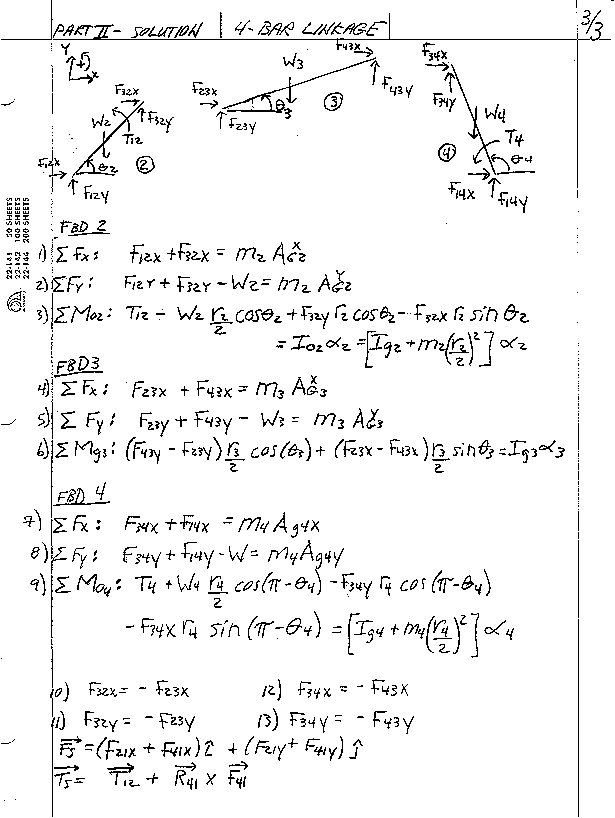 PART II - SOLUTION | 4-BAR LINKAGE
3/3
Y
X
F32X
F32Y
W2
T12
F12X
θ2
F12Y
②
F43X
W3
F23X
F43Y
θ3
F23Y
③
F34X
F34Y
W4
T4
④
θ4
F14X
F14Y
22-141 50 SHEETS
22-142 100 SHEETS
22-144 200 SHEETS
FBD 2
1) ΣFx: F12x + F32x = m2 AG2^x
2) ΣFy: F12Y + F32Y - W2 = m2 AG2^Y
3) ΣMo2: T12 - W2 r2/2 cosθ2 + F32y r2 cosθ2 - F32x r2 sin θ2
= Io2 α2 = [Ig2 + m2(r2/2)^2] α2
FBD3
4) ΣFx: F23x + F43x = m3 AG3^x
5) ΣFy: F23y + F43y - W3 = m3 AG3^Y
6) ΣMg3: (F43y - F23y) r3/2 cos(θ3) + (F23x - F43x) r3/2 sinθ3 = Ig3 α3
FBD 4
7) ΣFx: F34x + F14x = m4 Ag4x
8) ΣFy: F34y + F14y - W = m4 Ag4y
9) ΣMo4: T4 + W4 r4/2 cos(π-θ4) - F34y r4 cos(π-θ4)
- F34x r4 sin(π-θ4) = [Ig4 + m4(r4/2)^2] α4
10) F32x = - F23x 12) F34x = - F43x
11) F32y = - F23y 13) F34y = - F43y
Fs = (F21x + F41x) î + (F21y + F41y) ĵ
Ts = T12 + R41 x F41